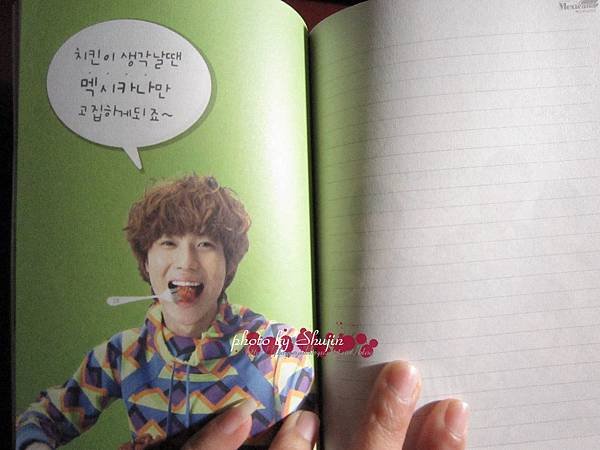 치킨이 생각날땐
멕시카나만
고집하게되죠~
Mexicana
photo by Shujin